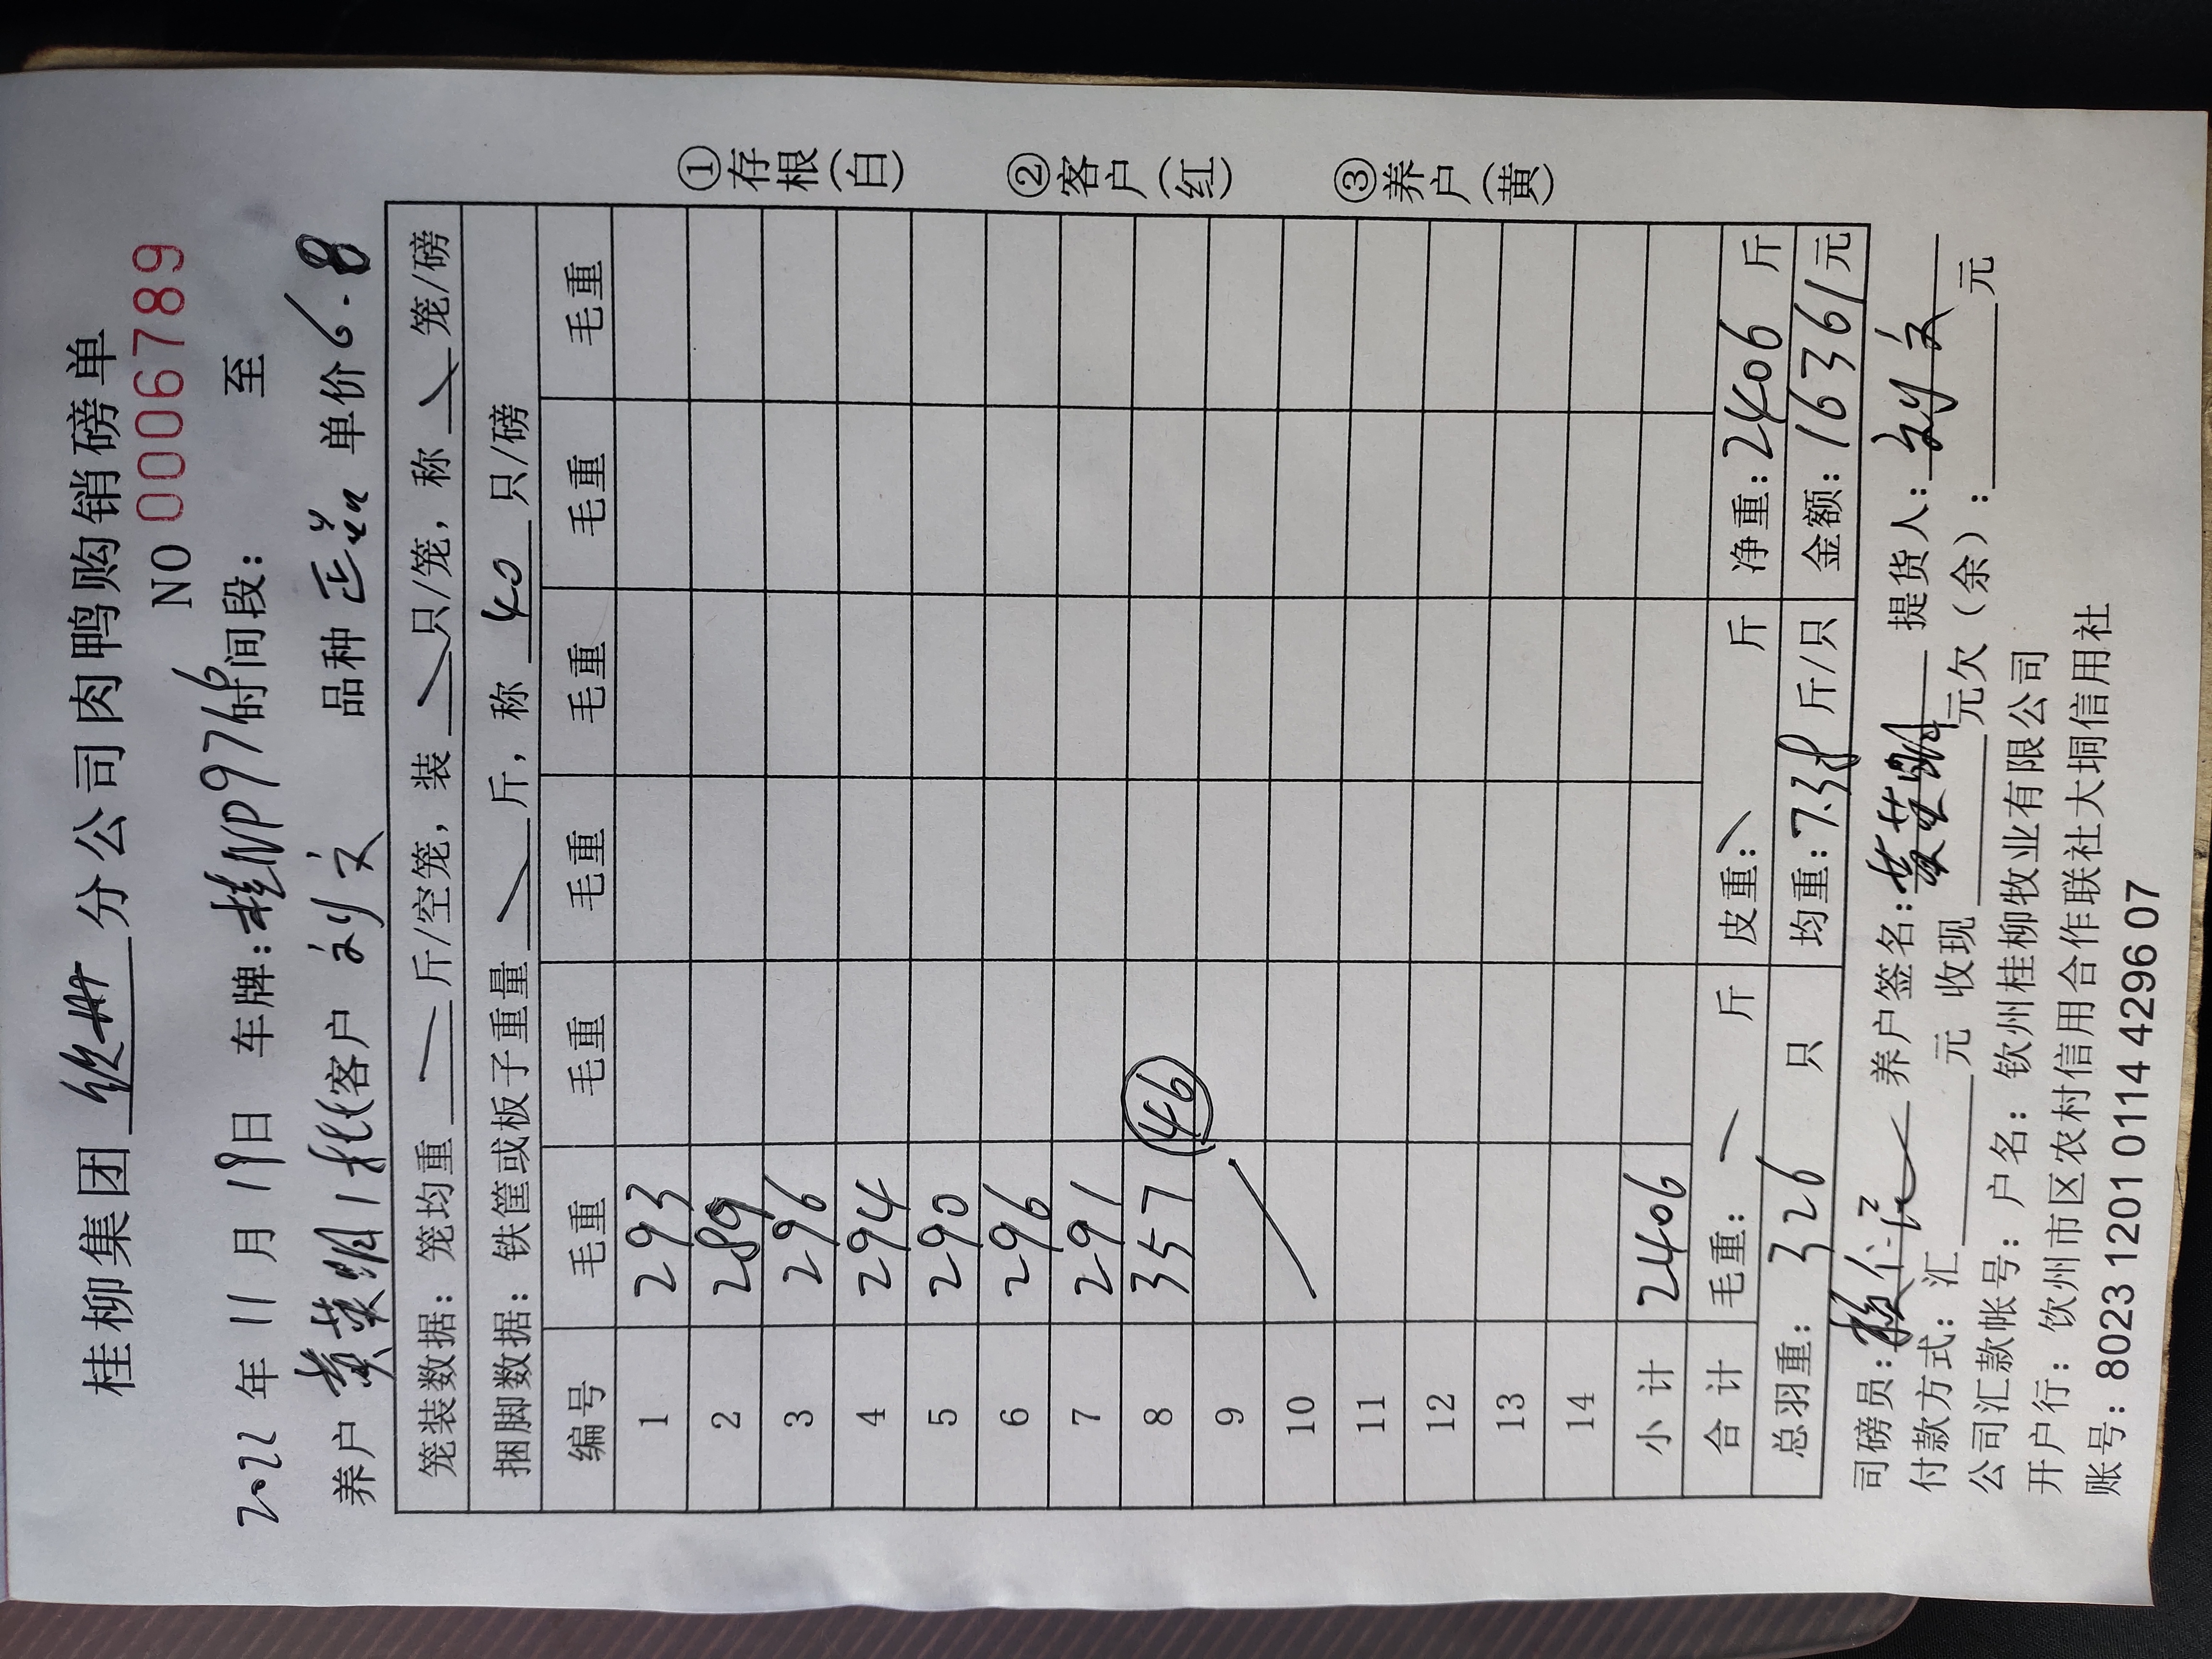 桂柳集团 钦州 分公司肉鸭购销磅单
NO 0006789
2022 年 11 月 19 日 车牌：桂NP9716 时间段： 至
养户 黄英明 1批 客户 刘文 品种 正品 单价 6.8
笼装数据：笼均重 斤/空笼，装 只/笼，称 笼/磅
捆脚数据：铁筐或板子重量 斤，称 40 只/磅
编号 毛重 毛重 毛重 毛重 毛重 毛重
1 293
2 289
3 296
4 294
5 290
6 296
7 291
8 357 46
9
10
11
12
13
14
小计 2406
合计 毛重： 斤 皮重： 斤 净重：2406 斤
总羽重： 326 只 均重：7.38 斤/只 金额：16361元
①存根(白)
②客户(红)
③养户(黄)
司磅员： 养户签名：黄英明 提货人：刘文
付款方式：汇 元 收现 元欠（余）： 元
公司汇款帐号：户名：钦州桂柳牧业有限公司
开户行：钦州市区农村信用合作联社大垌信用社
账号：8023 1201 0114 4296 07